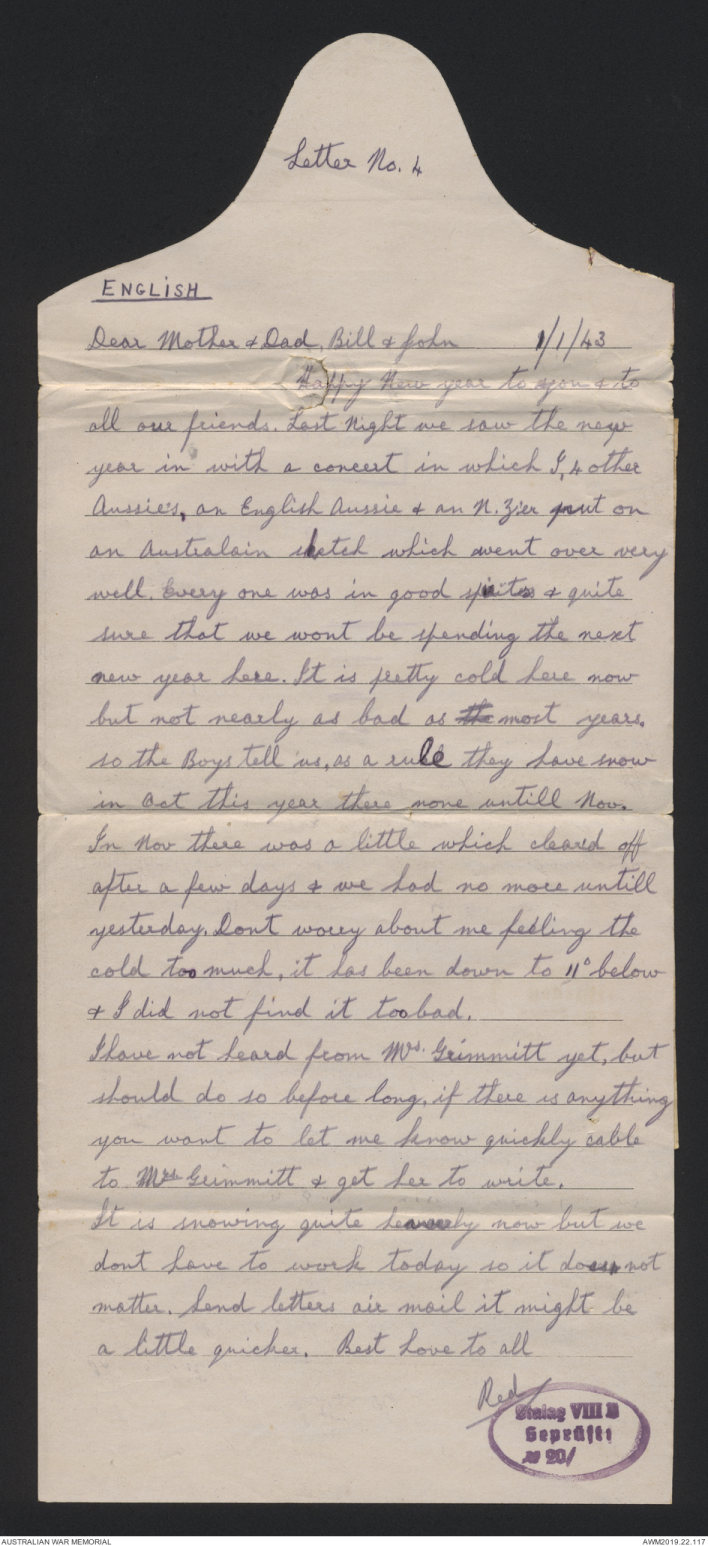 Letter No. 4
ENGLISH
Dear Mother & Dad, Bill & John 1/1/43
Happy New year to you & to
all our friends. Last Night we saw the new
year in with a concert in which I, 4 other
Aussie's, an English Aussie & an N.Z'er put on
an Australain sketch which went over very
well. Every one was in good spirits & quite
sure that we wont be spending the next
new year here. It is pretty cold here now
but not nearly as bad as most years,
so the Boys tell us, as a rule they have snow
in Oct this year there none untill Nov.
In Nov there was a little which cleard off
after a few days & we had no more untill
yesterday. Dont worry about me feeling the
cold too much, it has been down to 11° below
& I did not find it too bad.
I have not heard from Mrs. Grimmitt yet, but
should do so before long, if there is anything
you want to let me know quickly cable
to Mrs Grimmitt & get her to write.
It is snowing quite now but we
dont have to work today so it does not
matter. Send letters air mail it might be
a little quicker. Best Love to all
Red
Stalag VIII B
Geprüft:
20/
AUSTRALIAN WAR MEMORIAL
AWM2019.22.117